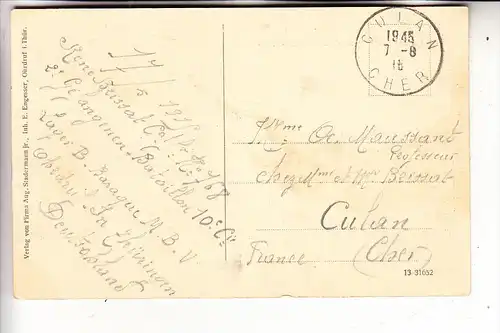 Verlag von Firma Aug. Sondermann jr., Inh. E. Engesser, Ohrdruf i. Thür.
René Brissat
2e Gefangenen-Bataillon 10e Cie
Lager B. Baraque M.B.V
Ohrdruf. In Thüringen
Deutschland
CULAN
1945
7-8
CHER
Mme De Maussant
Professeur
chez Mme et Mr Brissat
Culan
(Cher)
France
13-31652